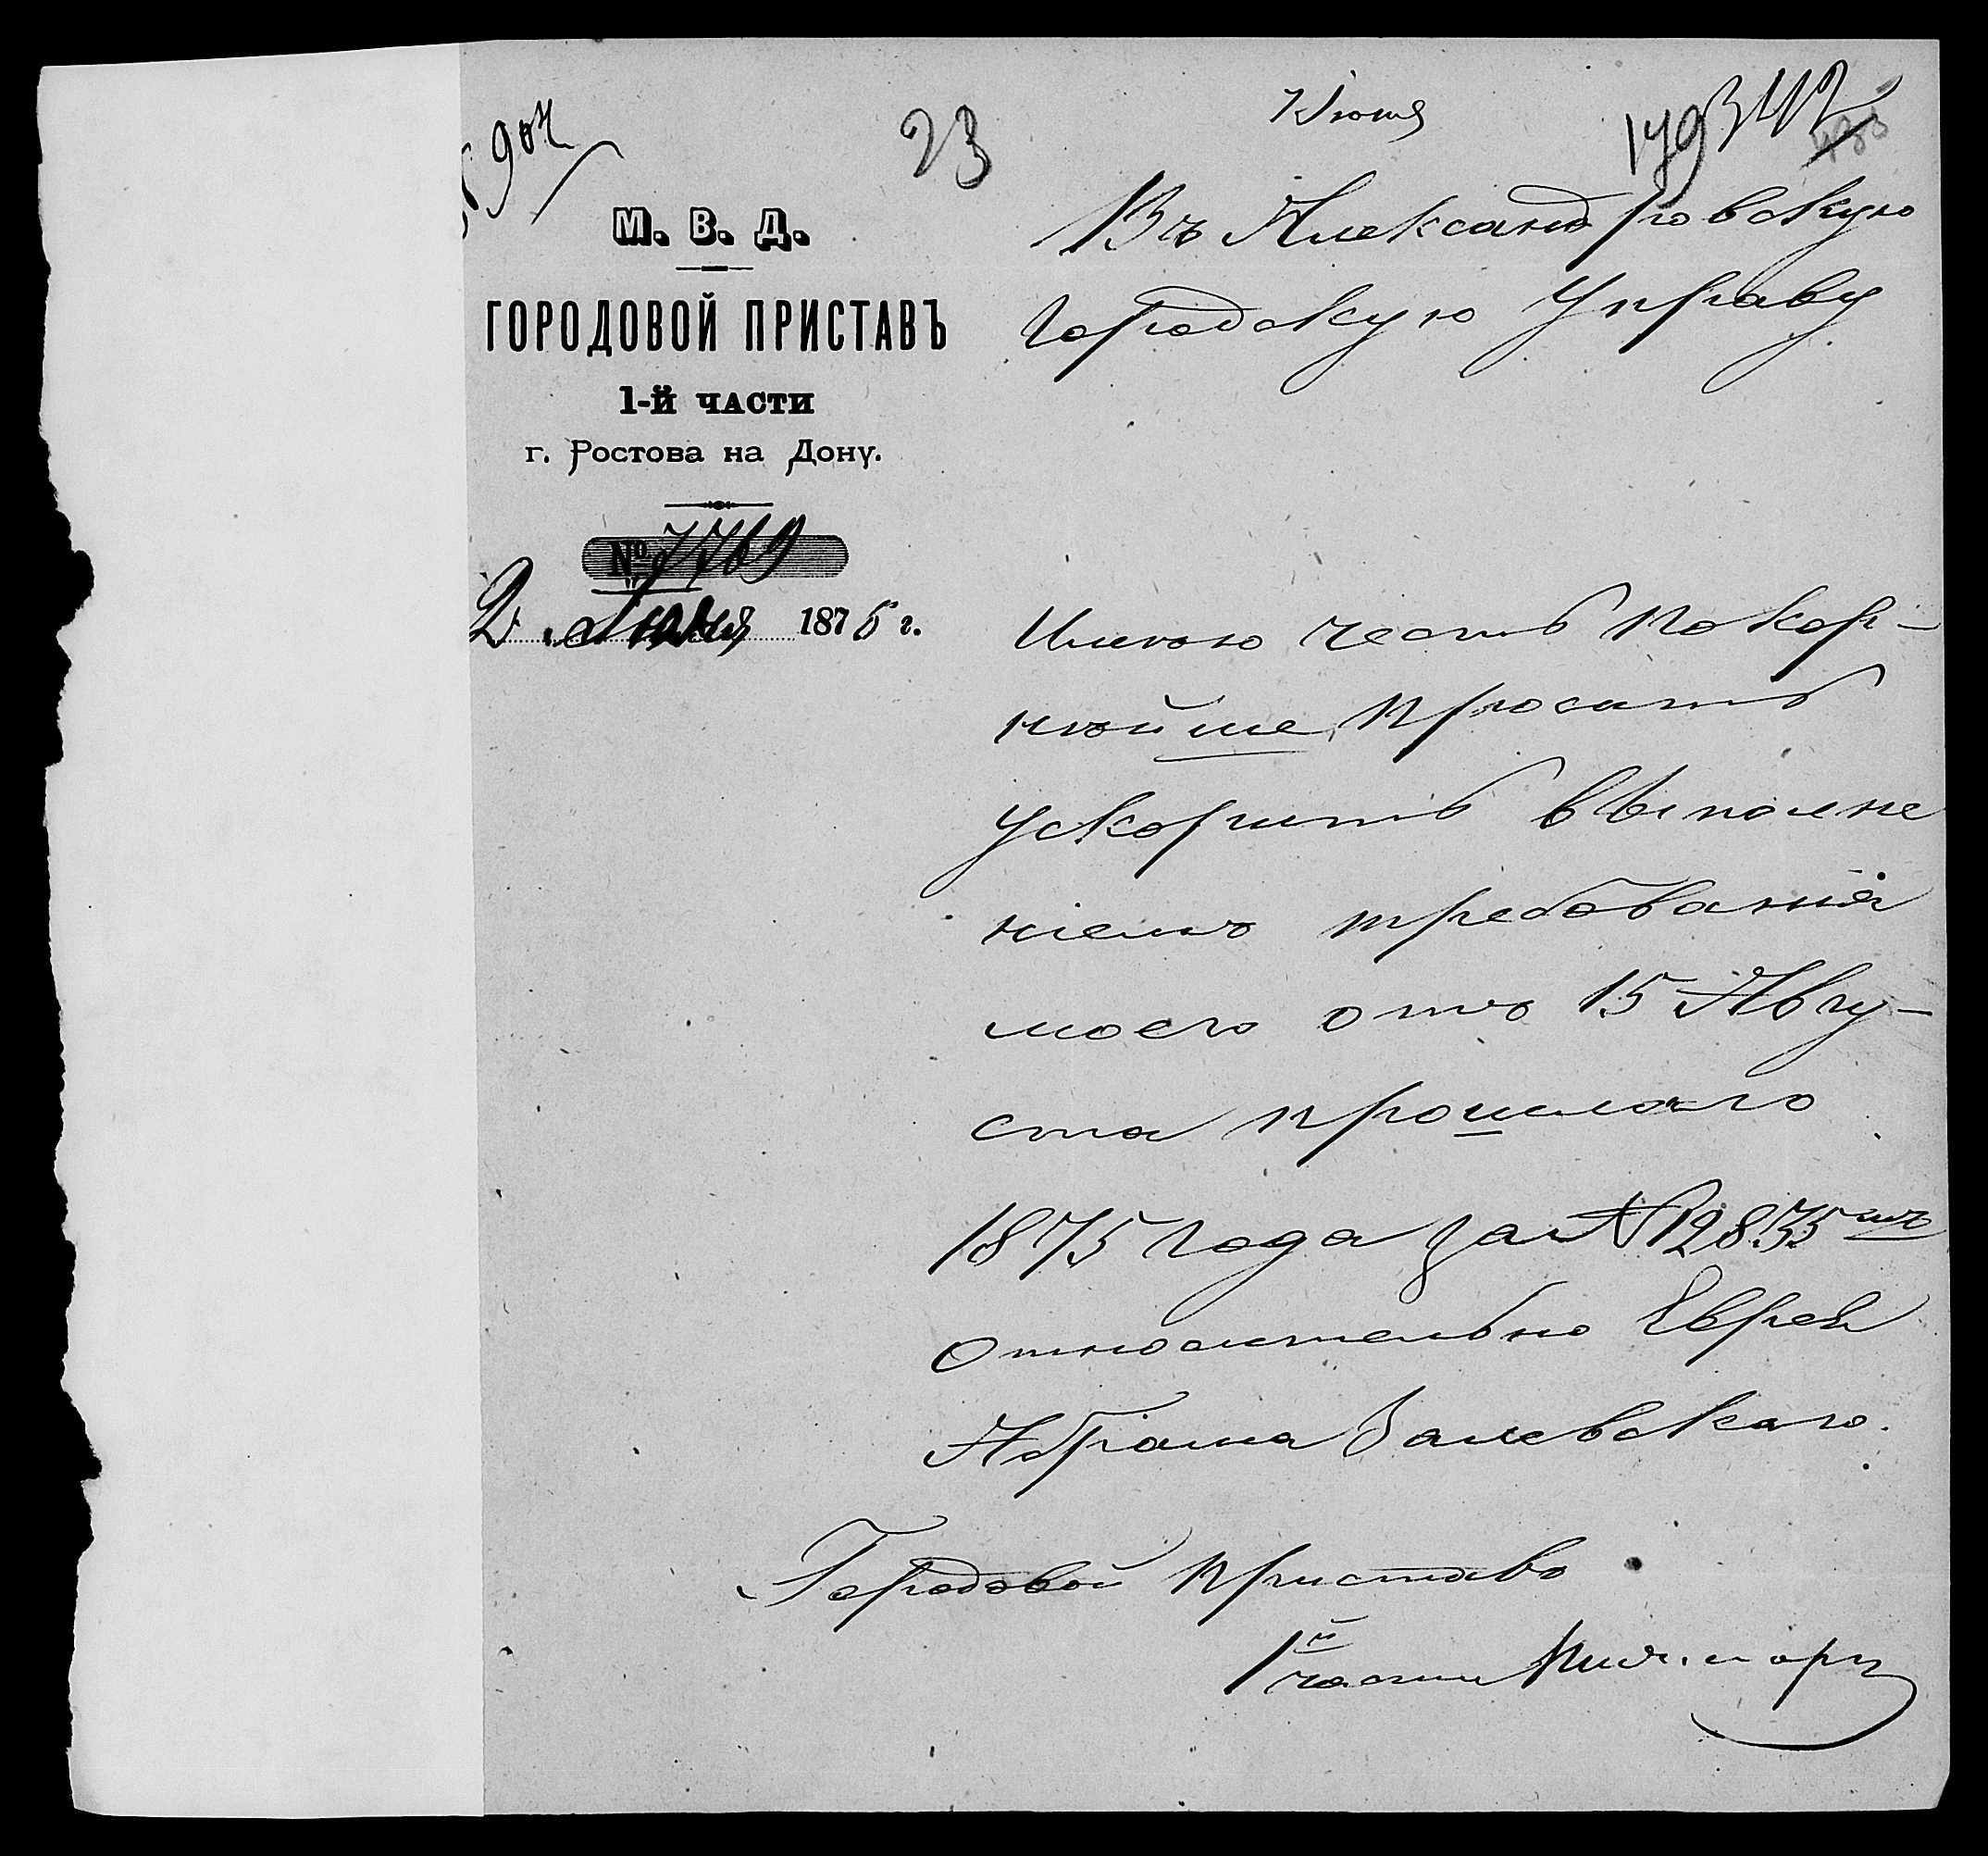 904
23
Июня
179 342
М. В. Д.
ГОРОДОВОЙ ПРИСТАВЪ
1-й ЧАСТИ
г. Ростова на Дону.
№ 7769
2 Июня 1876 г.
Въ Александровскую
Городскую Управу
Имѣю честь покор-
нѣйше просить
ускорить выполне
ніемъ требованія
моего отъ 15 Авгу-
ста прошлаго
1875 года за № 12835мъ
относительно Еврея
Абрама Залевскаго.
Городовой Приставъ
1й части